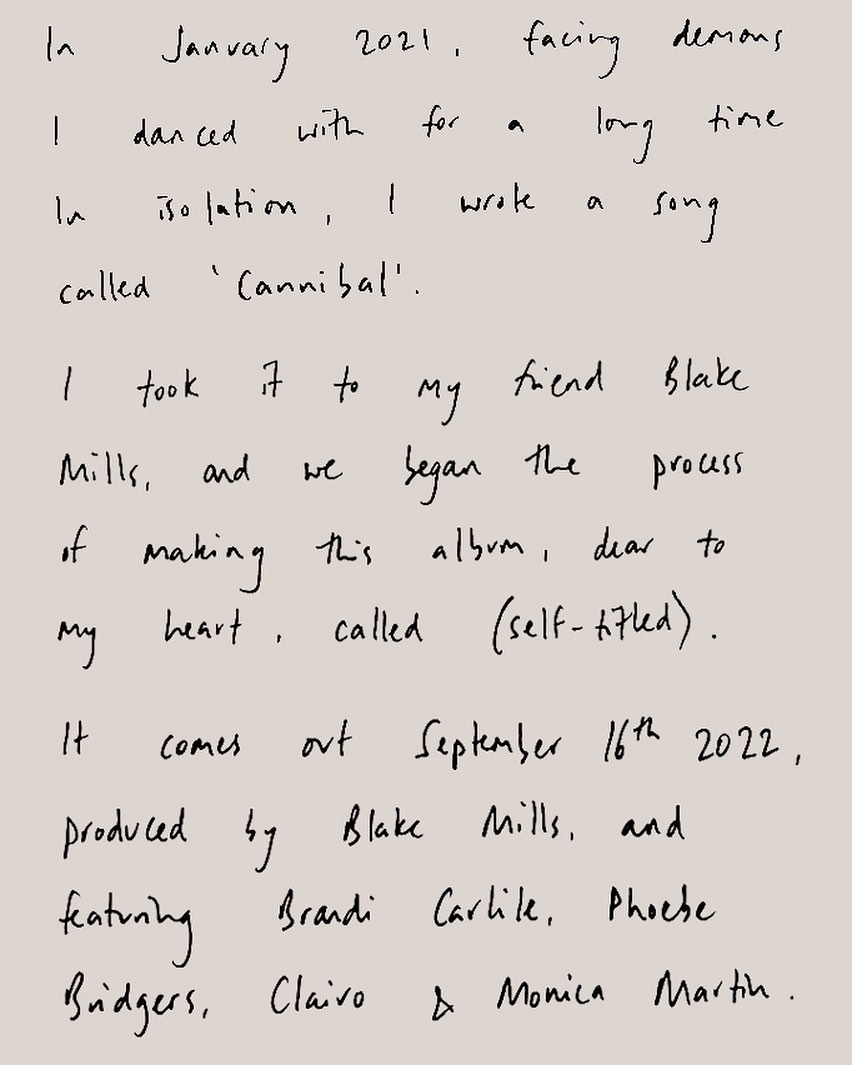 In January 2021, facing demons
I danced with for a long time
In isolation, I wrote a song
called 'Cannibal'.
I took it to my friend Blake
Mills, and we began the process
of making this album, dear to
my heart, called (self-titled).
It comes out September 16th 2022,
produced by Blake Mills, and
featuring Brandi Carlile, Phoebe
Bridgers, Clairo & Monica Martin.